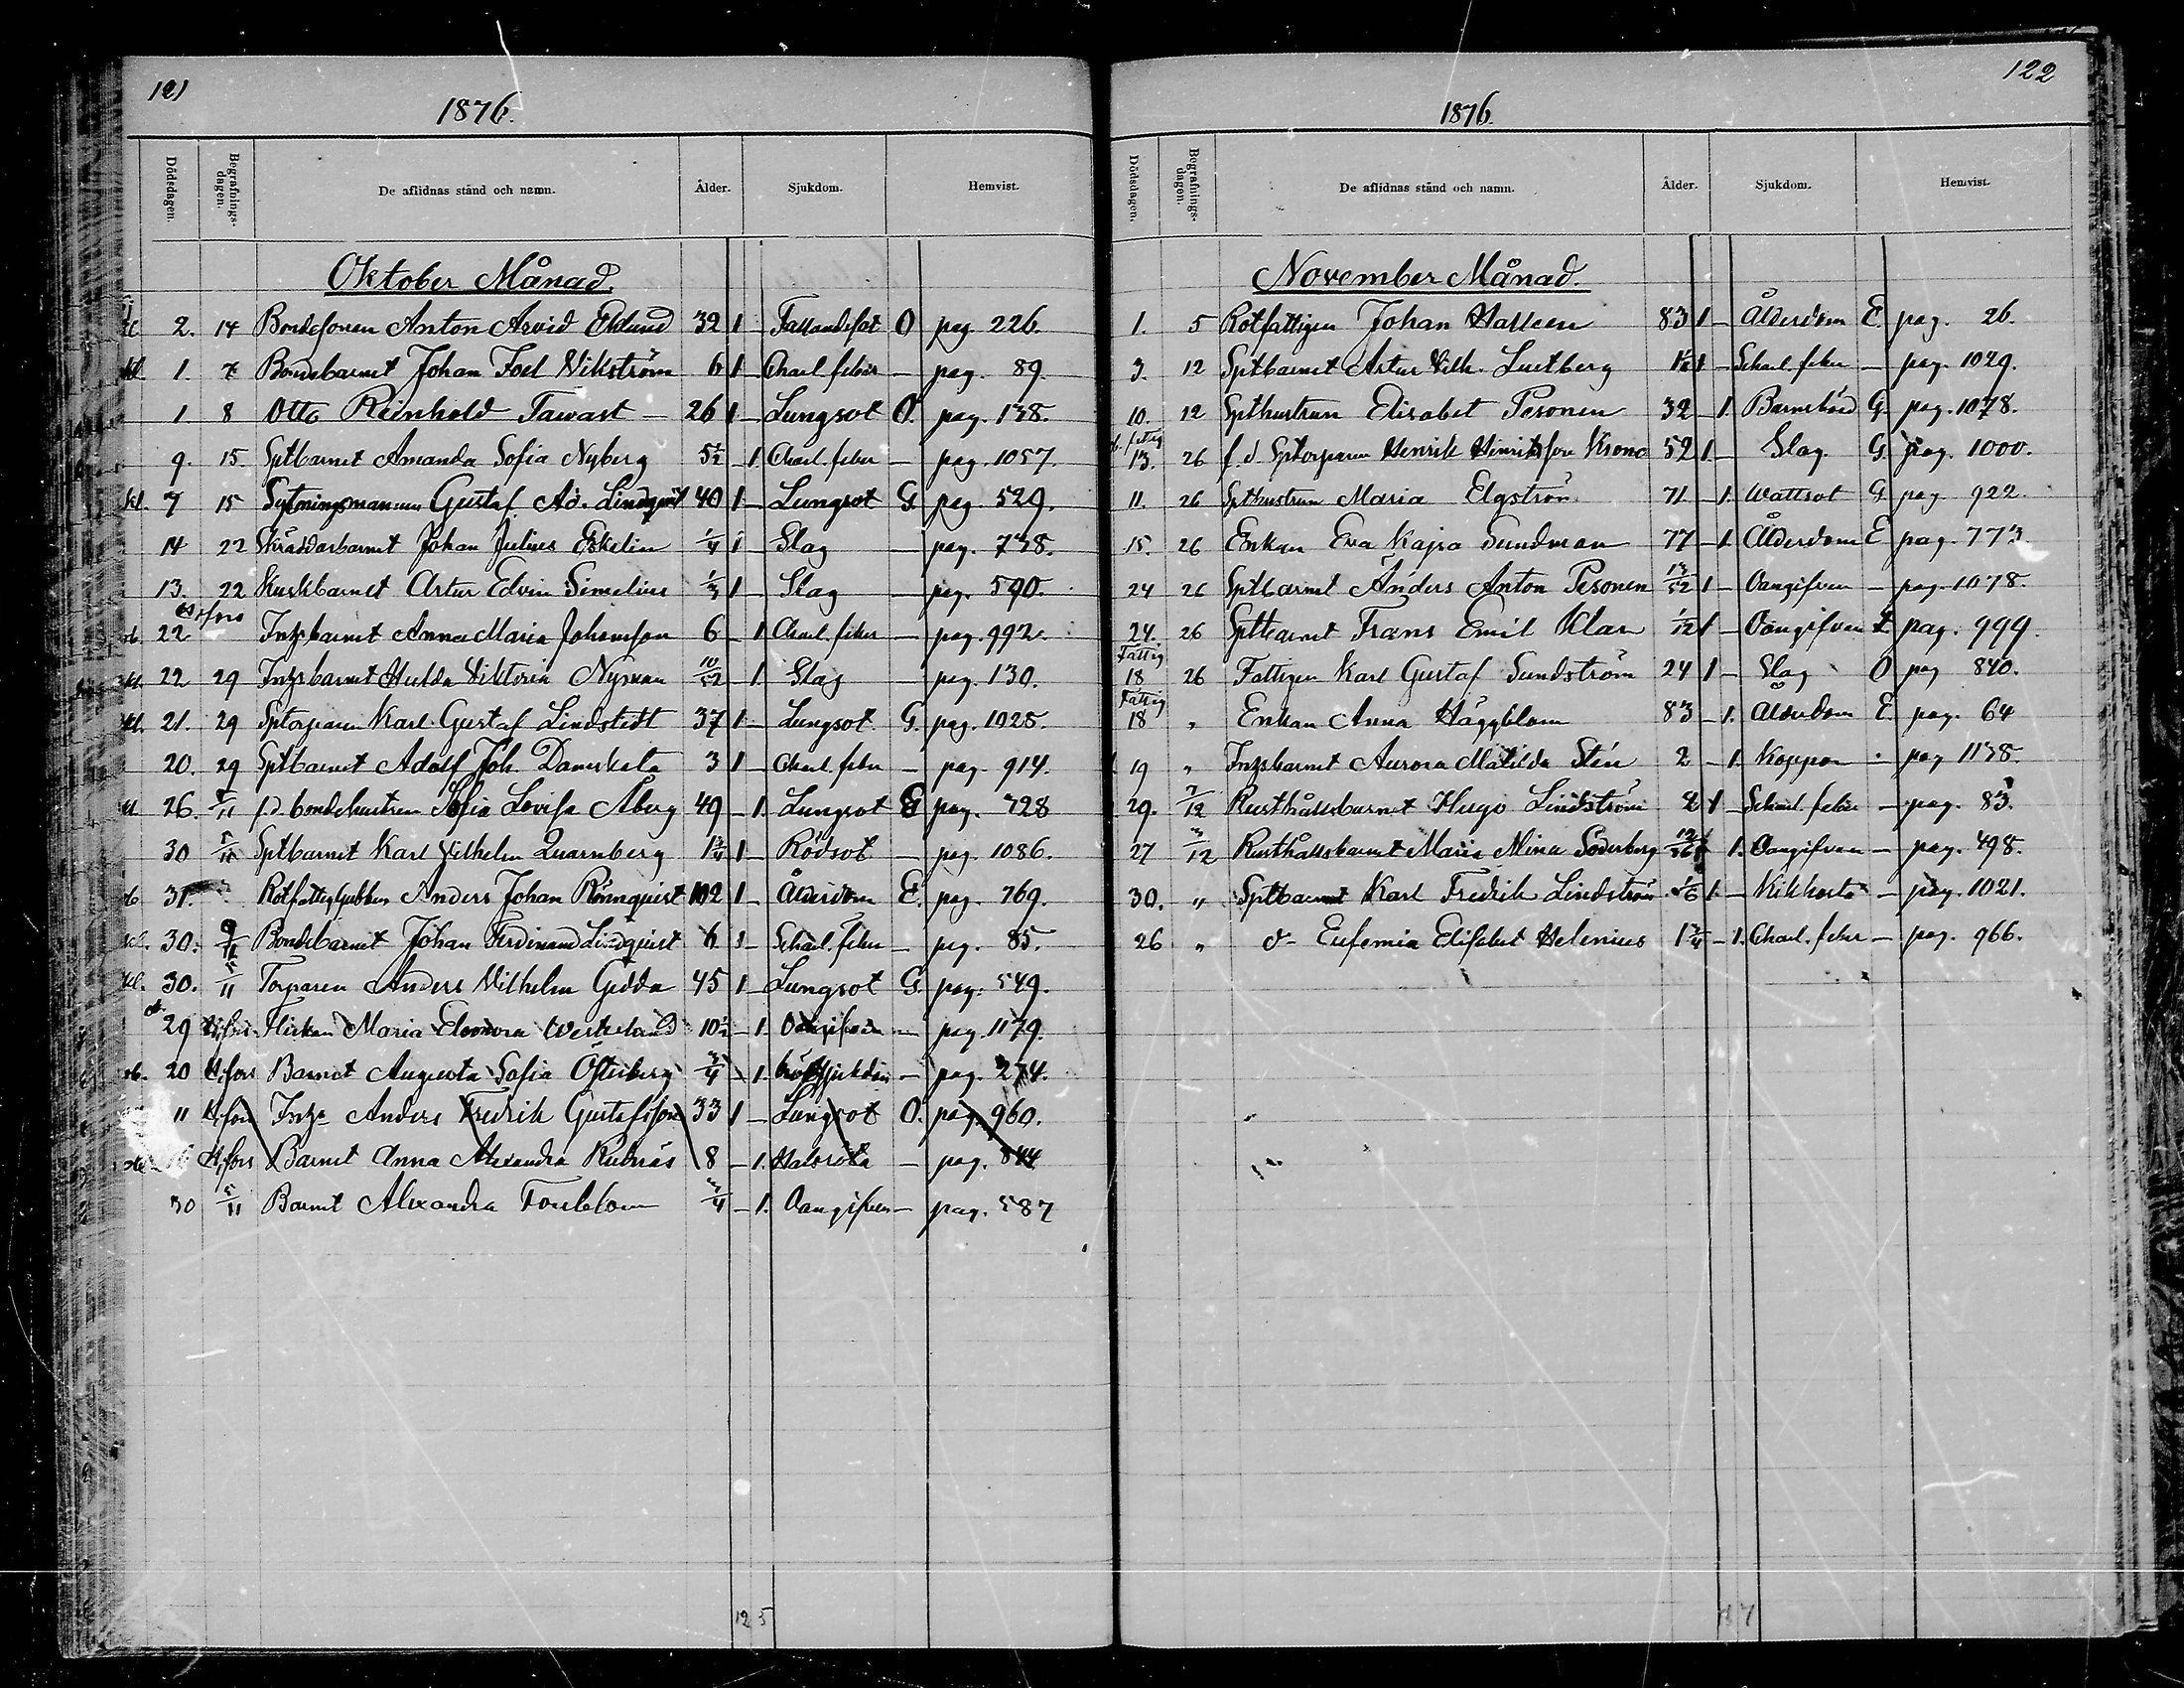 121
1876.
Dödsdagen. Begrafnings-dagen. De aflidnas stånd och namn. Ålder. Sjukdom. Hemvist.
Oktober Månad.
kl. 2. 14 Bondesonen Anton Arvid Eklund 32 1 – Fallandesot O pag. 226.
kl. 1. 7 Bondebarnet Johan Joel Wikström 6 1 – Charl. feber – pag. 89.
1. 8 Otto Reinhold Tawast – 26 1 – Lungsot O. pag. 138.
9. 15. Sptbarnet Amanda Sofia Nyberg 5½ – 1. Charl. feber – pag. 1057.
kl. 7 15 Sytningsmannen Gustaf Ad. Lindqvist 40 1 – Lungsot G. pag. 529.
14 22 Skräddarbarnet Johan Julius Eskelin ¼ 1 – Slag – pag. 738.
13. 22 Kuskbarnet Artur Edvin Simelius ⅓ 1 – Slag – pag. 590.
22 Inhysbarnet Anna Maria Johansson 6 – 1. Charl. feber – pag. 992.
kl. 22 29 Inhysbarnet Hulda Viktoria Nyman 10/52 – 1. Slag – pag. 130.
kl. 21. 29 Sptorparen Karl Gustaf Lindstedt 37 1 – Lungsot. G. pag. 1025.
20. 29 Sptbarnet Adolf Joh. Danskata 3 1 – Charl. feber – pag. 914.
kl. 26. 5/11 f.d. bondehustrun Sofia Lovisa Åberg 49 – 1. Lungsot G pag. 728
30 5/11 Sptbarnet Karl Vilhelm Quarnberg 1¾ 1 – Rödsot – pag. 1086.
31. Rotfattiggubben Anders Johan Rönnquist 102 1 – Ålderdom E. pag. 769.
kl. 30. Bondebarnet Johan Ferdinand Lindquist 6 1 – Scharl. feber – pag. 85.
kl. 30. 5/11 Torparen Anders Wilhelm Gedda 45 1 – Lungsot G. pag. 549.
29 H:fors Flickan Maria Eleonora Westerlund 10½ – 1. Oangifven – pag. 1179.
ob. 20 H:fors Barnet Augusta Sofia Österberg ¾ – 1. Bröstsjukdom – pag. 274.
11 H:fors Inhys Anders Fredrik Gustafsson 33 1 – Lungsot O. pag. 960.
H:fors Barnet Anna Alexandra Rudnäs 8 – 1. Halsröta – pag. 844
30 5/11 Barnet Alexandra Forsblom ¾ – 1. Oangifven – pag. 587
12 5
122
1876.
Dödsdagen. Begrafnings-dagen. De aflidnas stånd och namn. Ålder. Sjukdom. Hemvist.
November Månad.
1. 5 Rotfattigen Johan Halleen 83 1 – Ålderdom E. pag. 26.
3. 12 Sptbarnet Artur Vilh. Lustberg 1 – Scharl. feber – pag. 1029.
10. 12 Spthustrun Elisabet Pesonen 32 – 1. Barnsbörd G. pag. 1078.
fattig
13. 26 f.d. Sptorparen Henrik Henriksson Krono 52 1. – Slag. G. pag. 1000.
11. 26 Spthustrun Maria Elgström 71 – 1. Wattsot G. pag. 922.
15. 26 Enkan Eva Kajsa Sundman 77 – 1. Ålderdom E pag. 773
24 26 Sptbarnet Anders Anton Pesonen 13/52 1 – Oangifven – pag. 1078.
24. 26 Sptbarnet Frans Emil Klar 1/12 1 – Oangifven – pag. 999.
Fattig
18 26 Fattigen Karl Gustaf Sundström 24 1 – Slag O pag 840.
Fattig
18 „ Enkan Anna Häggblom 83 – 1. Ålderdom E. pag. 64
19 „ Inhysbarnet Aurora Matilda Stén 2 – 1. Koppor – pag 1138.
29. 3/12 Rusthållsbarnet Hugo Lindström 2 1 – Scharl. feber – pag. 83.
27 3/12 Rusthållsbarnet Maria Mina Söderberg – 1. Oangifven – pag. 498.
30. „ Sptbarnet Karl Fredrik Lindström 1. – Kikhosta – pag. 1021.
26 „ d– Eufemia Elisabet Helenius 1¾ – 1. Charl. feber – pag. 966.